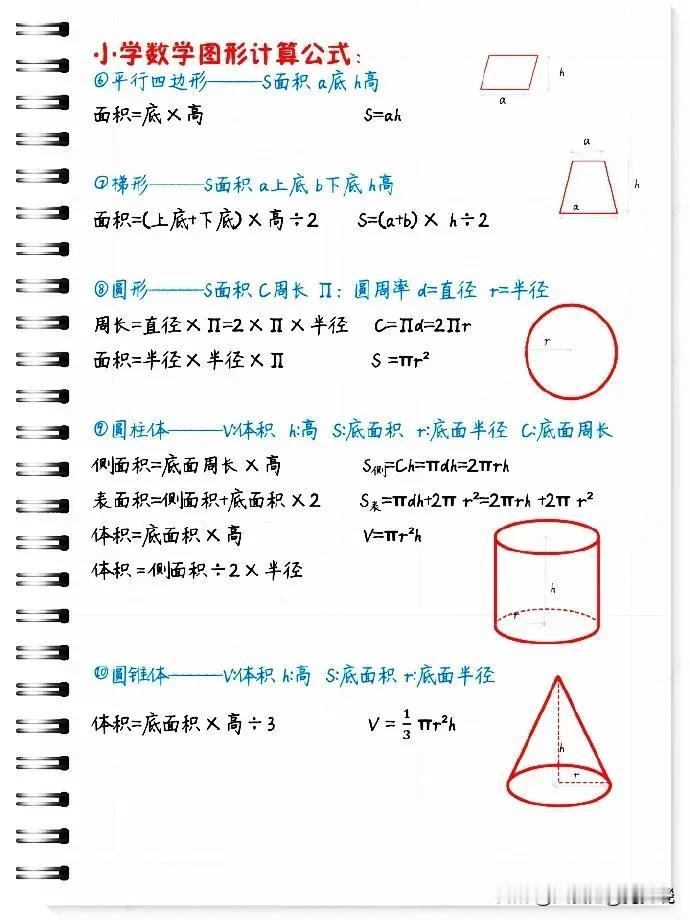 小学数学图形计算公式:
⑥平行四边形———S面积 a底 h高
h
a
面积=底×高 S=ah
a
⑦梯形———S面积 a上底 b下底 h高
h
a
面积=(上底+下底)×高÷2 S=(a+b)× h÷2
⑧圆形———S面积 C周长 Π: 圆周率 d=直径 r=半径
周长=直径×Π=2×Π×半径 C=Πd=2Πr
r
面积=半径×半径×Π S =πr²
⑨圆柱体———V:体积 h:高 S:底面积 r:底面半径 C:底面周长
侧面积=底面周长×高 S侧=Ch=πdh=2πrh
表面积=侧面积+底面积×2 S表=πdh+2π r²=2πrh +2π r²
体积=底面积×高 V=πr²h
体积 =侧面积÷2×半径
h
r
⑩圆锥体———V:体积 h:高 S:底面积 r:底面半径
体积=底面积×高÷3 V = 1/3 πr²h
h
r